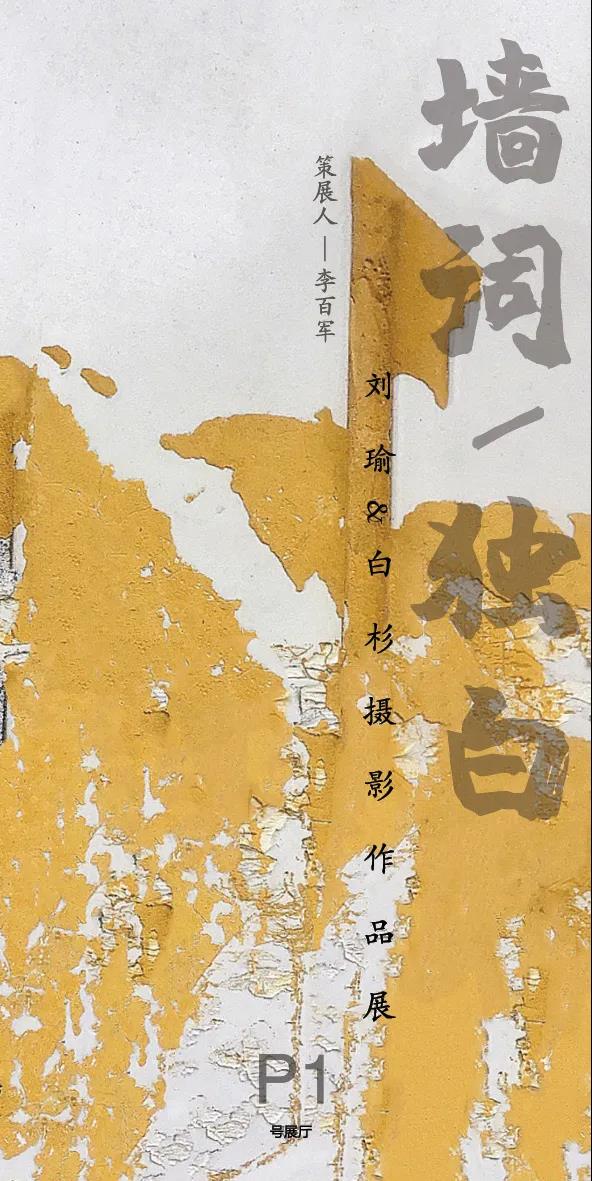 墙词/独白
刘瑜&白杉摄影作品展
策展人—李百军
P1
号展厅